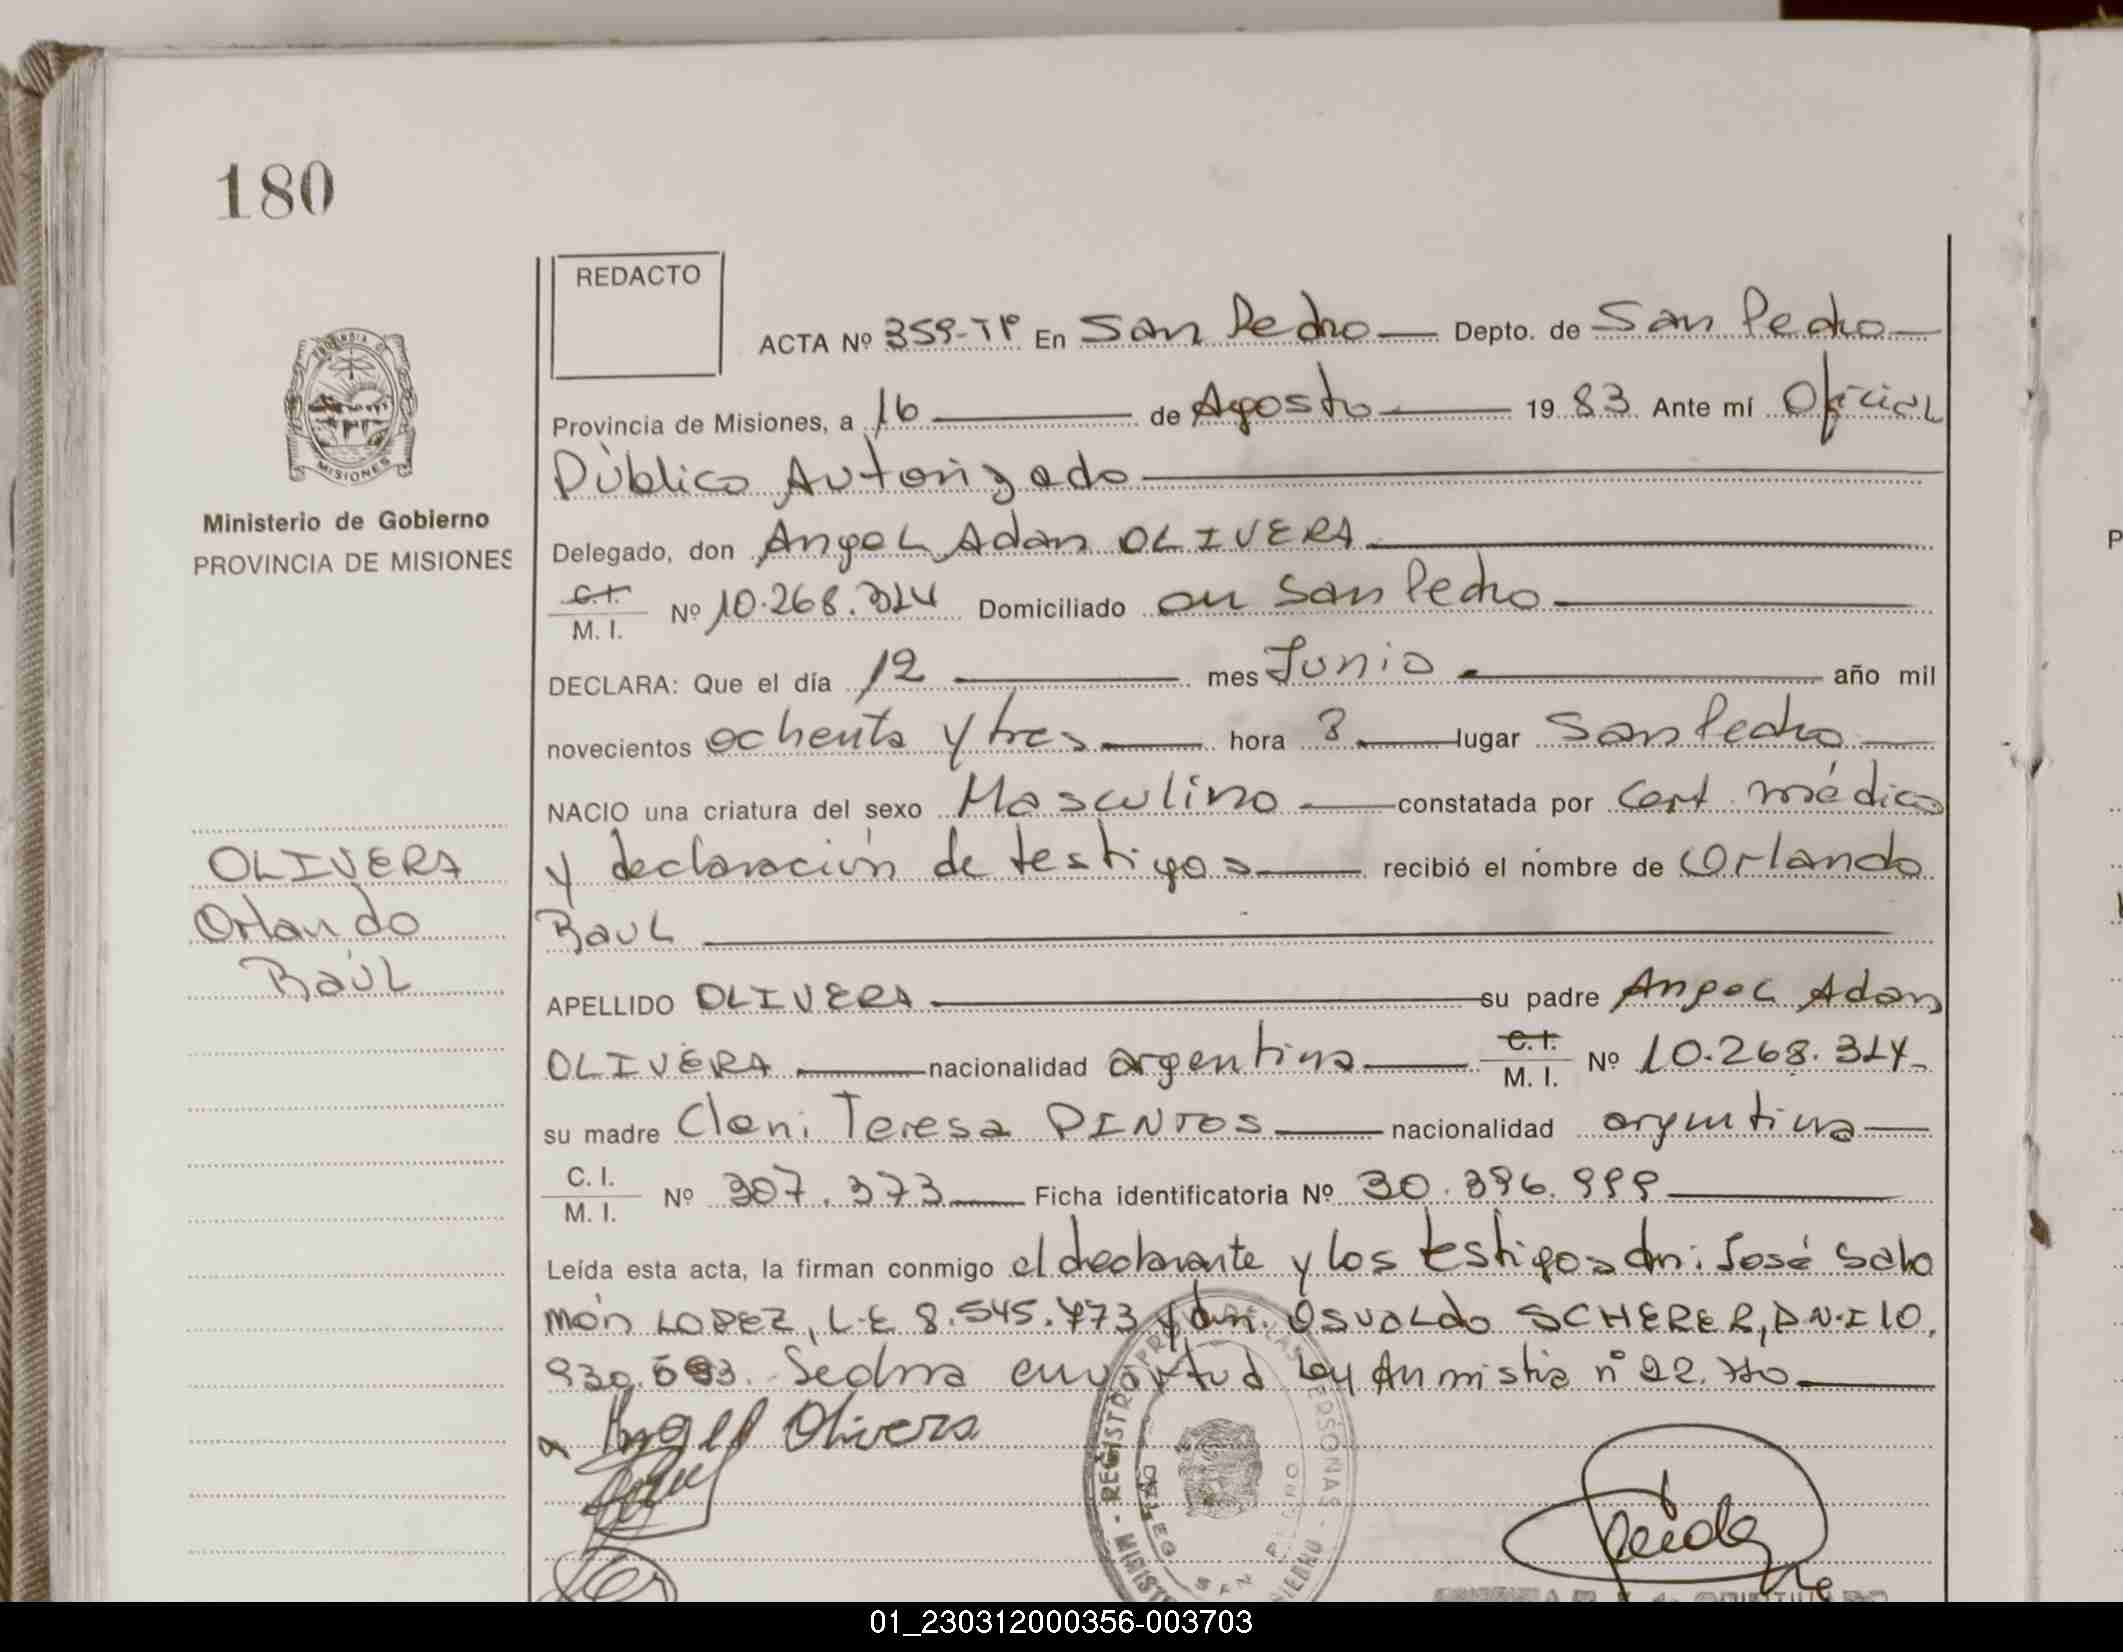 180
REDACTO
ACTA Nº 359-TP En San Pedro Depto. de San Pedro
Provincia de Misiones, a 16 de Agosto 1983 Ante mí Oficial
Público Autorizado
Delegado, don Angel Adan OLIVERA
C.I. M. I. Nº 10.268.314 Domiciliado en San Pedro
DECLARA: Que el día 12 mes Junio año mil
novecientos ochenta y tres hora 8 lugar San Pedro
NACIO una criatura del sexo Masculino constatada por Cert. médico
y declaración de testigos recibió el nombre de Orlando
Raul
APELLIDO OLIVERA su padre Angel Adan
OLIVERA nacionalidad argentina C.I. M. I. Nº 10.268.314
su madre Cleni Teresa PINTOS nacionalidad argentina
C. I. M. I. Nº 307.373 Ficha identificatoria Nº 30.396.999
Leída esta acta, la firman conmigo el declarante y los testigos dn: José Salo
món LOPEZ, L.E 8.545.773 y dn. Osvaldo SCHERER, D.N.I 10.
930. Sedma en virtud ley Amnistia nº 22.770
Angel Olivera
PROVINCIA DE MISIONES
Ministerio de Gobierno
PROVINCIA DE MISIONES
OLIVERA
Orlando
Raúl
REGISTRO PROV. DE LAS PERSONAS
SAN PEDRO
01_230312000356-003703